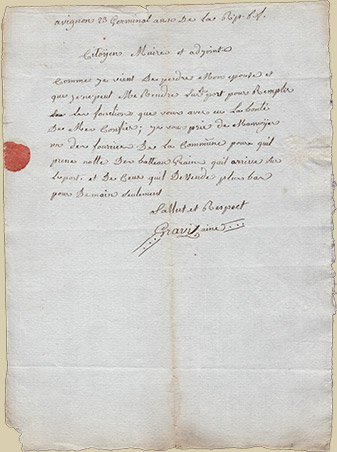 avignon 23 Germinal an 10 De La Rep. f.se
Citoyen Maire et adjoint
Comme je vient De perdre Mon epouse et
que je ne peut Me Rendre sur le port pour Remplir
Les fonction que vous avez eu La bonté
De Me Confier; je vous prie de
un des fourrier De La Commune pour quil
prene notte Des batteau Graine quil arrive sur
Le port et De Ceux quil Desende plus bas
pour Demain Seulement
Sallut et Respect
Gravit ainé